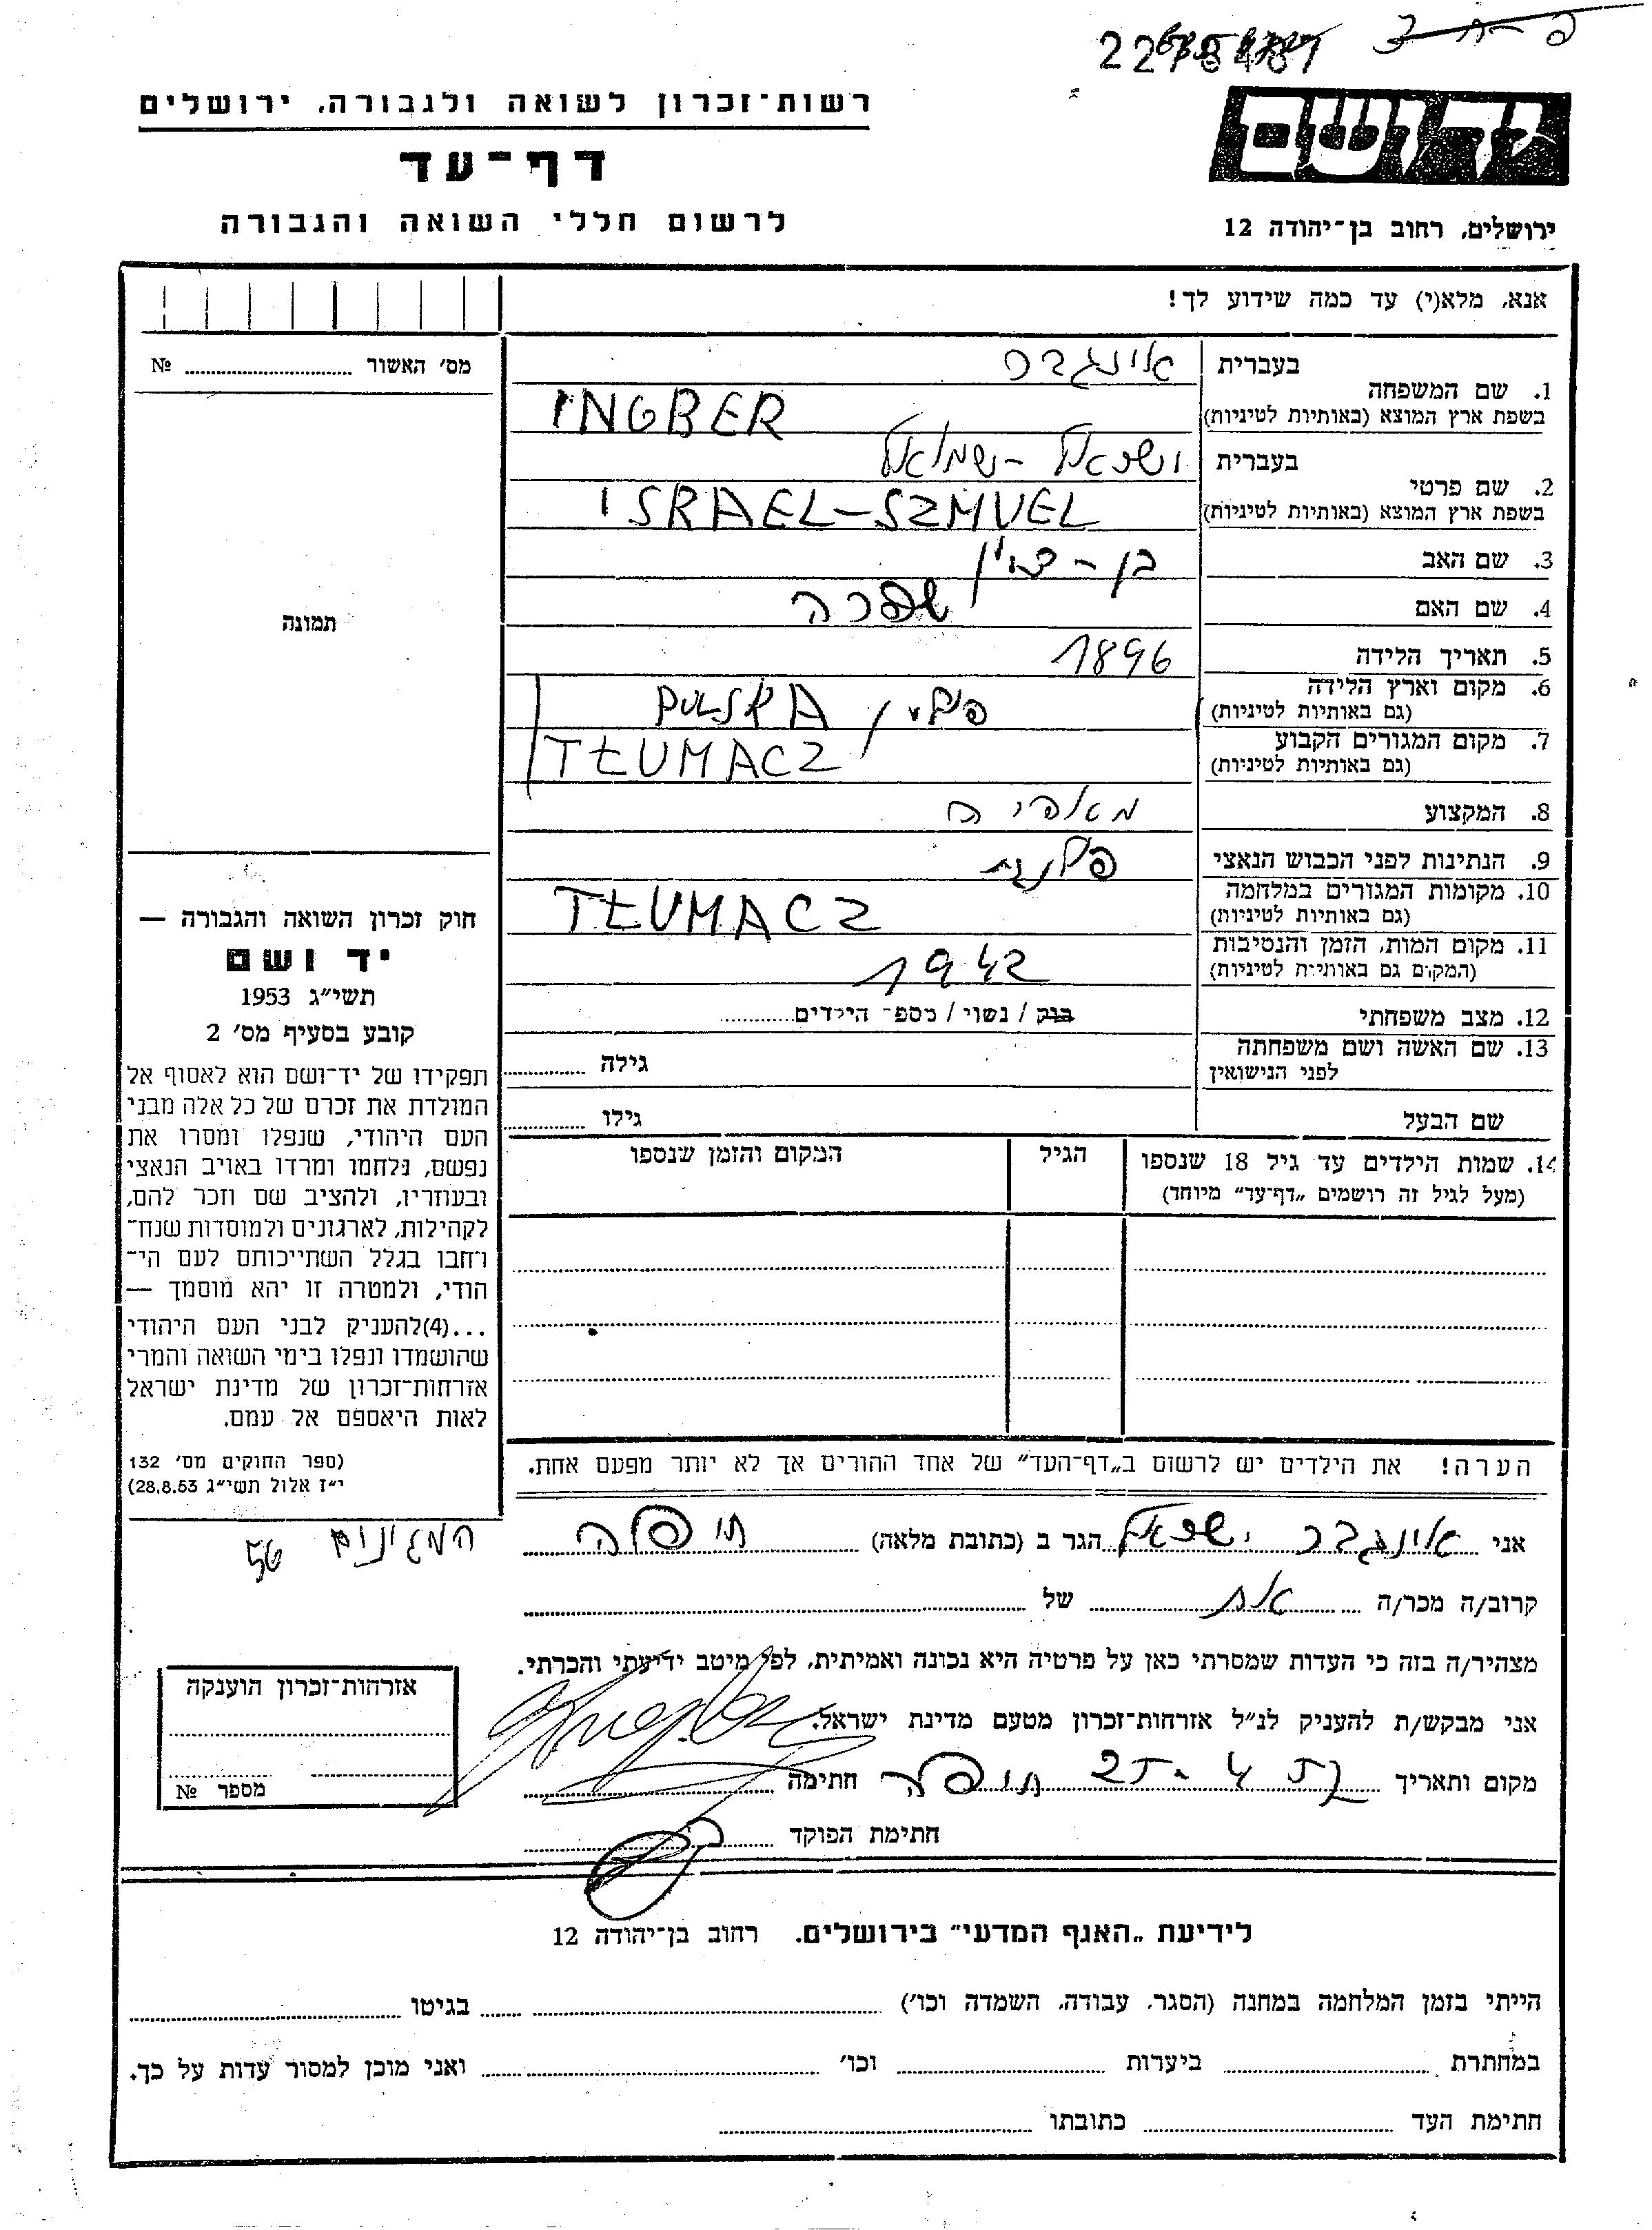 רשות־זכרון לשואה ולגבורה, ירושלים
דף־עד
לרשום חללי השואה והגבורה
יד ושם
ירושלים, רחוב בן־יהודה 12
אנא, מלא(י) עד כמה שידוע לך!
מס׳ האשור № 
תמונה
חוק זכרון השואה והגבורה —
יד ושם
תשי״ג 1953
קובע בסעיף מס׳ 2
תפקידו של יד־ושם הוא לאסוף אל
המולדת את זכרם של כל אלה מבני
העם היהודי, שנפלו ומסרו את
נפשם, נלחמו ומרדו באויב הנאצי
ובעוזריו, ולהציב שם וזכר להם,
לקהילות, לארגונים ולמוסדות שנח־
רחבו בגלל השתייכותם לעם הי־
הודי, ולמטרה זו יהא מוסמך —
...(4)להעניק לבני העם היהודי
שהושמדו ונפלו בימי השואה והמרי
אזרחות־זכרון של מדינת ישראל
לאות היאספם אל עמם.
(ספר החוקים מס׳ 132
י״ז אלול תשי״ג 28.8.53)
1. שם המשפחה בעברית אינגבר
בשפת ארץ המוצא (באותיות לטיניות) INGBER
2. שם פרטי בעברית ישראל - שמואל
בשפת ארץ המוצא (באותיות לטיניות) ISRAEL-SZMUEL
3. שם האב בן - ציון
4. שם האם שפרה
5. תאריך הלידה 1896
6. מקום וארץ הלידה (גם באותיות לטיניות) פולין POLSKA
7. מקום המגורים הקבוע (גם באותיות לטיניות) TŁUMACZ
8. המקצוע
9. הנתינות לפני הכבוש הנאצי פולנית
10. מקומות המגורים במלחמה (גם באותיות לטיניות) TŁUMACZ
11. מקום המות, הזמן והנסיבות (המקום גם באותיות לטיניות) 1942
12. מצב משפחתי רווק / נשוי / מספר הילדים
13. שם האשה ושם משפחתה לפני הנישואין גילה
שם הבעל גילו
14. שמות הילדים עד גיל 18 שנספו (מעל לגיל זה רושמים „דף־עד״ מיוחד) הגיל המקום והזמן שנספו
הערה! את הילדים יש לרשום ב„דף־העד״ של אחד ההורים אך לא יותר מפעם אחת.
אני אינגבר ישראל הגר ב (כתובת מלאה) חיפה
המגינים 56
קרוב/ה מכר/ה של
מצהיר/ה בזה כי העדות שמסרתי כאן על פרטיה היא נכונה ואמיתית, לפי מיטב ידיעתי והכרתי.
אני מבקש/ת להעניק לנ״ל אזרחות־זכרון מטעם מדינת ישראל.
מקום ותאריך חיפה חתימה
חתימת הפוקד
אזרחות־זכרון הוענקה
מספר №
לידיעת „האגף המדעי״ בירושלים. רחוב בן־יהודה 12
הייתי בזמן המלחמה במחנה (הסגר, עבודה, השמדה וכו׳) בגיטו
במחתרת ביערות וכו׳ ואני מוכן למסור עדות על כך.
חתימת העד כתובתו